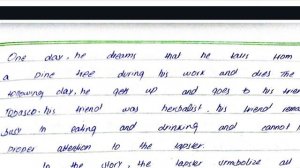 One day, he dreams that he falls from
a pine tree during his work and dies. The
following day, he gets up and goes to his frien
Tobasco. his friend was herbalist. his friend remai
busy in eating and drinking and cannot
proper attention to the tapster.
In the story, the tapster symbolize all